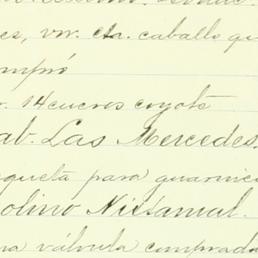 es, vr. cta. caballo qu
mpró
. 14 cueros coyote
ab. Las Mercedes.
queta para guarnic
olino Nixtamal.
na válvula comprada